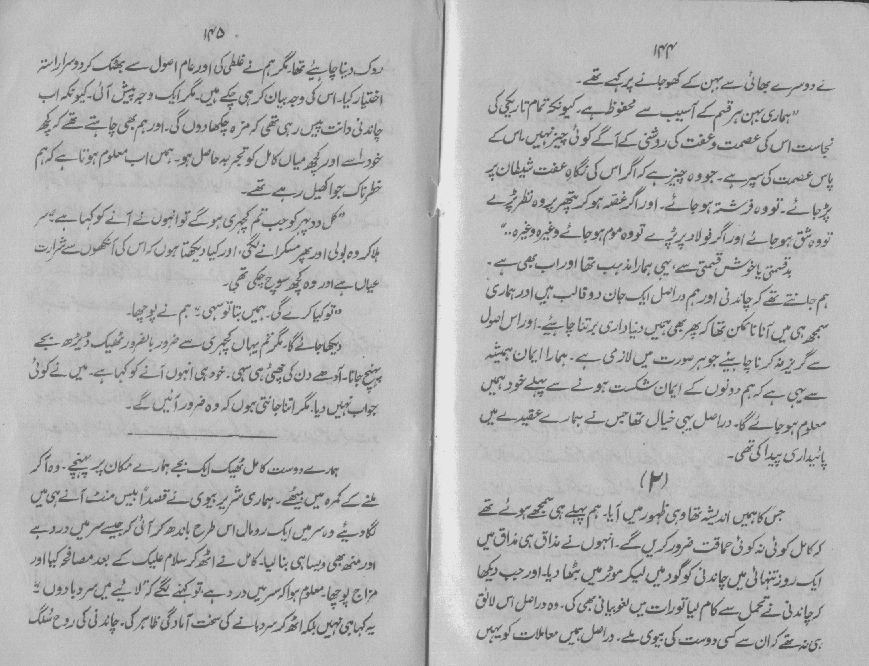 ۱۴۴
نے دوسرے بھائی سے بہن کے کھوجانے پر کہے تھے۔
"ہماری بہن ہر قسم کے آسیب سے محفوظ ہے۔ کیونکہ تمام تاریکی کی
نجاست اس کی عصمت و عفت کی روشنی کے آگے کوئی چیز نہیں۔ اس کے
پاس عصمت کی سپر ہے۔ جو وہ چیز ہے کہ اگر اس کی نگاہِ عفت شیطان پر
پڑ جائے۔ تو وہ فرشتہ ہو جائے۔ اور اگر غصّہ ہو کر پتھر پر وہ نظر پڑے
تو وہ شق ہو جائے اور اگر فولاد پر پڑے تو وہ موم ہو جائے وغیرہ وغیرہ۔۔"
بدقسمتی یا خوش قسمتی سے، یہی ہمارا مذہب تھا اور اب بھی ہے۔
ہم جانتے تھے کہ چاندنی اور ہم دراصل ایک جان دو قالب ہیں اور ہماری
سمجھ ہی میں آنا ناممکن تھا کہ پھر بھی ہمیں دنیا داری برتنا چاہیے۔ اور اس اصول
سے گریز نہ کرنا چاہیئے جو ہر صورت میں لازمی ہے۔ ہمارا ایمان ہمیشہ
سے یہی ہے کہ ہم دونوں کے ایمان شکست ہونے سے پہلے خود ہمیں
معلوم ہو جائے گا۔ دراصل یہی خیال تھا جس نے ہمارے عقیدے میں
پائیداری پیدا کی تھی۔
(۲)
جس کا ہمیں اندیشہ تھا وہی ظہور میں آیا۔ ہم پہلے ہی سمجھے ہوئے تھے
کہ کامل کوئی نہ کوئی حماقت ضرور کریں گے۔ انہوں نے مذاق ہی مذاق میں
ایک روز تنہائی میں چاندنی کو گود میں لیکر موٹر میں بٹھا دیا۔ اور جب دیکھا
کہ چاندنی نے تحمل سے کام لیا تو رات میں لغو بیانی بھی کی۔ وہ دراصل اس لائق
ہی نہ تھے کہ ان سے کسی دوست کی بیوی ملے۔ دراصل ہمیں معاملات کو یہیں
۱۴۵
روک دینا چاہیئے تھا۔ مگر ہم نے غلطی کی اور عام اصول سے بھٹک کر دوسرا راستہ
اختیار کیا۔ اس کی وجہ بیان کر ہی چکے ہیں۔ مگر ایک وجہ پیش آئی۔ کیونکہ اب
چاندنی دانت پیس رہی تھی کہ مزہ چکھا دوں گی۔ اور ہم بھی چاہتے تھے کہ کچھ
خود اسے اور کچھ میاں کامل کو تجربہ حاصل ہو۔ ہمیں اب معلوم ہوتا ہے کہ ہم
خطرناک جوا کھیل رہے تھے۔
"کل دوپہر کو جب تم کچہری ہو گے تو انہوں نے آنے کو کہا ہے" سر
ہلا کر وہ بولی اور پھر مسکرانے لگی، اور کیا دیکھتا ہوں کہ اس کی آنکھوں سے شرارت
عیاں ہے اور وہ کچھ سوچ چکی تھی۔
"تو کیا کرے گی۔ ہمیں بتا تو سہی" ہم نے پوچھا۔
دیکھا جائے گا۔ مگر تم یہاں کچہری سے ضرور بالضرور ٹھیک ڈیڑھ بجے
پہنچ جانا۔ آدھے دن کی چھٹی ہی سہی۔ خود ہی انہوں آنے کو کہا ہے۔ میں نے کوئی
جواب نہیں دیا۔ مگر اتنا جانتی ہوں کہ وہ ضرور آئیں گے۔
ہمارے دوست کامل ٹھیک ایک بجے ہمارے مکان پر پہنچے۔ وہ آکر
ملنے کے کمرہ میں بیٹھے۔ ہماری شریر بیوی نے قصداً بیس منٹ آنے ہی میں
لگا دیئے وہ سر میں ایک رومال اس طرح باندھ کر آئی کہ جیسے سر میں درد ہے
اور منہ بھی ویسا ہی بنا لیا۔ کامل نے اٹھ کر سلام علیک کے بعد مصافحہ کیا اور
مزاج پوچھا۔ معلوم ہوا کہ سر میں درد ہے، تو کہنے لگے کہ "لائیے میں سر دبا دوں"
یہ کہا ہی نہیں بلکہ اٹھ کر سر دبانے کی سخت آمادگی ظاہر کی۔ چاندنی کی روح سُلگ